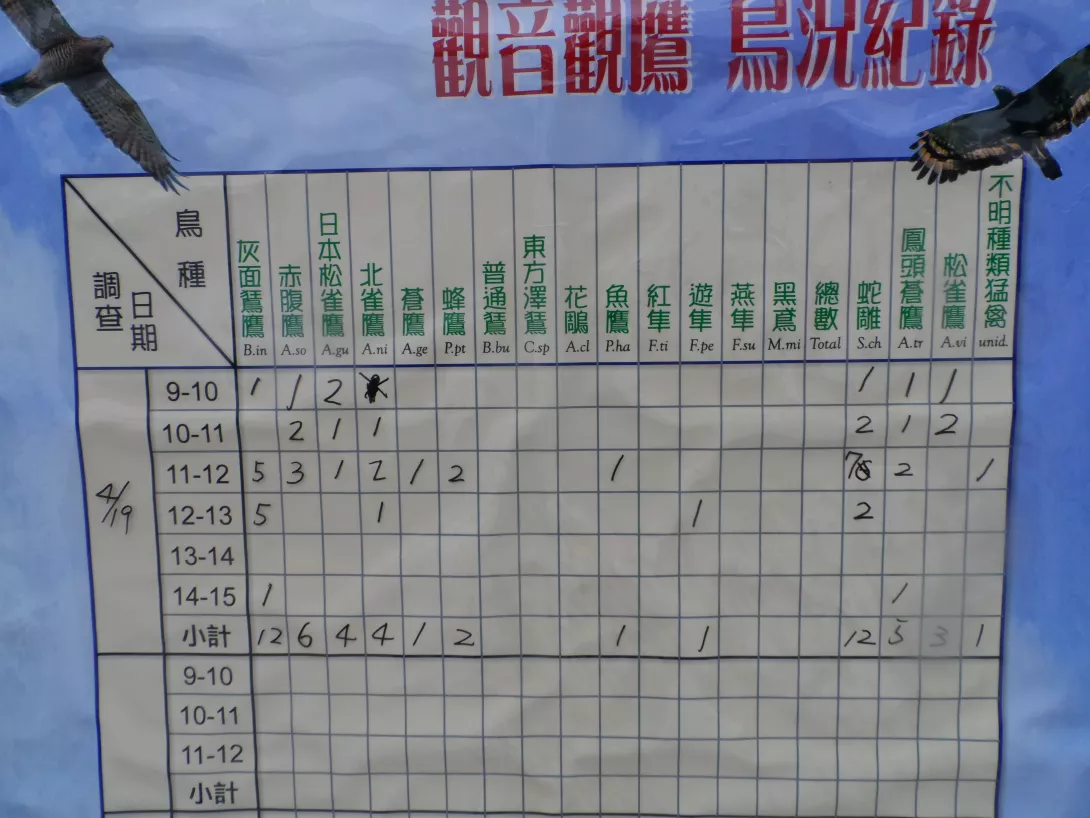 觀音觀鷹 鳥況紀錄
鳥種
調查日期
灰面鵟鷹 B.in
赤腹鷹 A.so
日本松雀鷹 A.gu
北雀鷹 A.ni
蒼鷹 A.ge
蜂鷹 P.pt
普通鵟 B.bu
東方澤鵟 C.sp
花鵰 A.cl
魚鷹 P.ha
紅隼 F.ti
遊隼 F.pe
燕隼 F.su
黑鳶 M.mi
總數 Total
蛇雕 S.ch
鳳頭蒼鷹 A.tr
松雀鷹 A.vi
不明種類猛禽 unid.
4/19
9-10 1 1 2 1 1 1
10-11 2 1 1 2 1 2
11-12 5 3 1 2 1 2 1 2 1
12-13 5 1 1 2
13-14
14-15 1 1
小計 12 6 4 4 1 2 1 1 12 5 3 1
9-10
10-11
11-12
小計